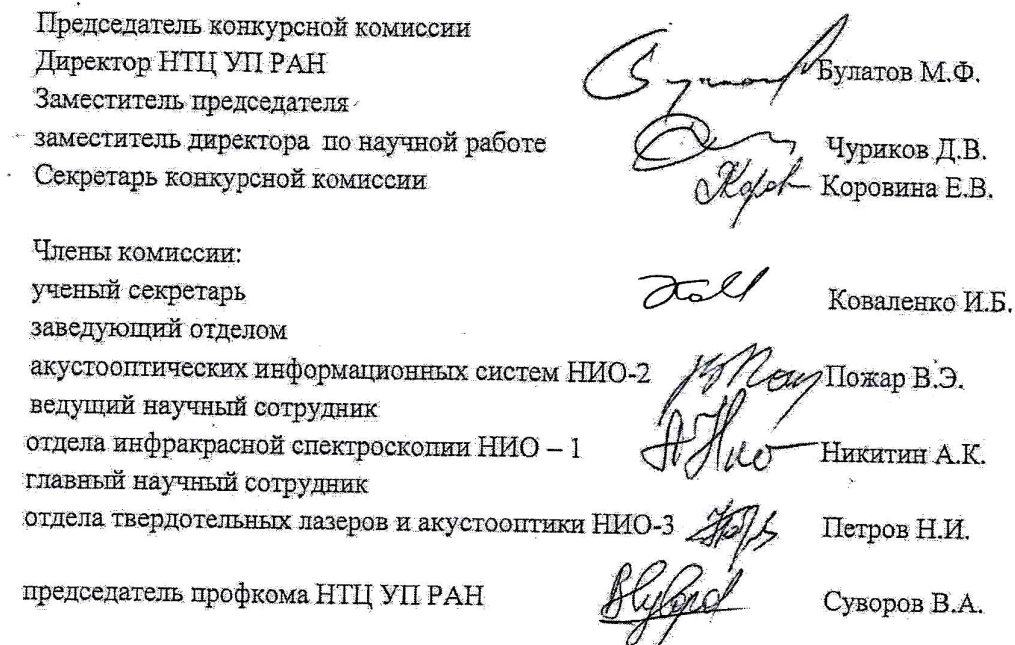 Председатель конкурсной комиссии
Директор НТЦ УП РАН Булатов М.Ф.
Заместитель председателя
заместитель директора по научной работе Чуриков Д.В.
Секретарь конкурсной комиссии Коровина Е.В.
Члены комиссии:
ученый секретарь Коваленко И.Б.
заведующий отделом
акустооптических информационных систем НИО-2 Пожар В.Э.
ведущий научный сотрудник
отдела инфракрасной спектроскопии НИО – 1 Никитин А.К.
главный научный сотрудник
отдела твердотельных лазеров и акустооптики НИО-3 Петров Н.И.
председатель профкома НТЦ УП РАН Суворов В.А.